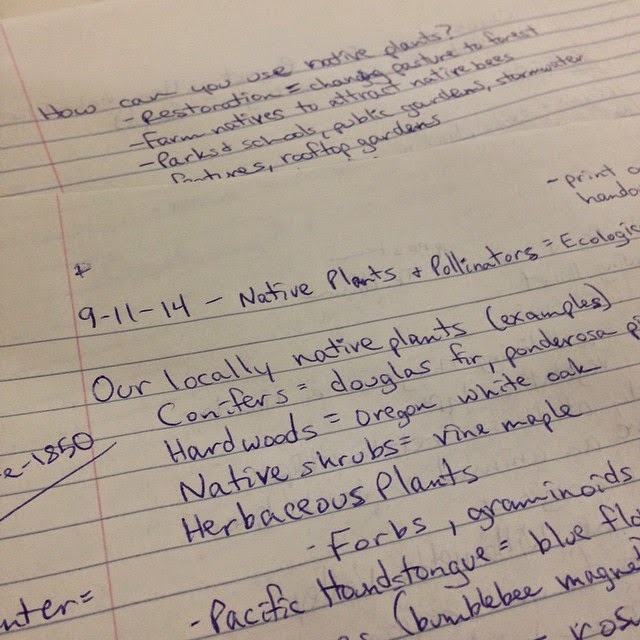 How can you use native plants?
- Restoration = changing pasture to forest
- Farm natives to attract native bees
- Parks & schools, public gardens, stormwater
features, rooftop gardens
- print
9-11-14 - Native Plants + Pollinators = Ecologic
Our locally native plants (examples)
Conifers = douglas fir, ponderosa p
Hardwoods = oregon white oak
e-1850
Native shrubs = vine maple
Herbaceous Plants
- Forbs, graminoids
- Pacific Houndstongue = blue flo
nter =
(bumblebee magnet